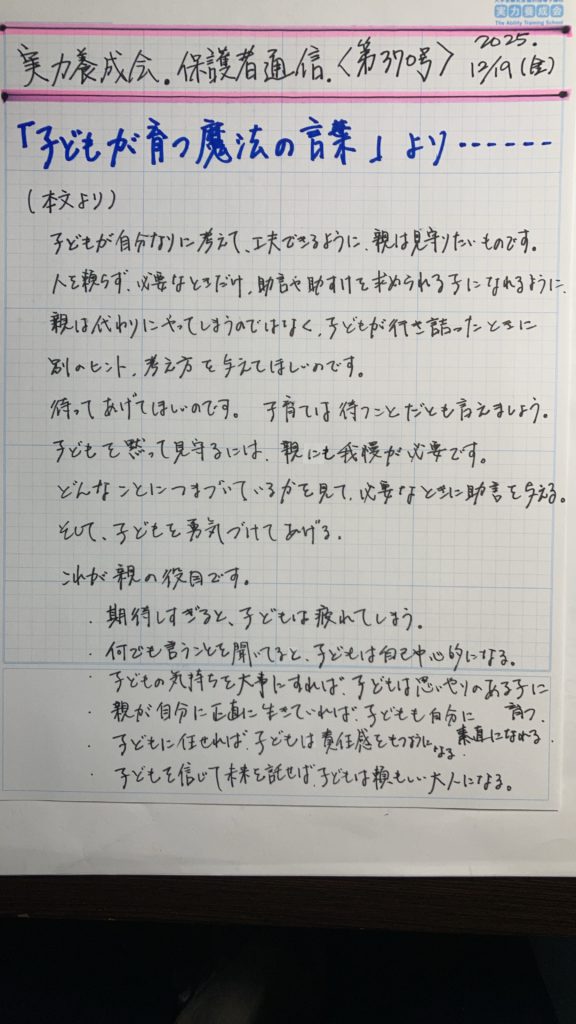 実力養成会
The Ability Training School
実力養成会。保護者通信.〈第370号〉 2025. 12/19(金)
「子どもが育つ魔法の言葉」より------
(本文より)
子どもが自分なりに考えて、工夫できるように、親は見守りたいものです。
人を頼らず、必要なときだけ、助言や助すけを求められる子になれるように、
親は代わりにやってしまうのではなく、子どもが行き詰ったときに
別のヒント、考え方を与えてほしいのです。
待ってあげてほしいのです。 子育ては待つことだとも言えましょう。
子どもを黙って見守るには、親にも我慢が必要です。
どんなことにつまづいているかを見て、必要なときに助言を与える。
そして、子どもを勇気づけてあげる。
これが親の役目です。
・期待しすぎると、子どもは疲れてしまう。
・何でも言うことを聞いてると、子どもは自己中心的になる。
・子どもの気持ちを大事にすれば、子どもは思いやりのある子に育つ。
・親が自分に正直に生きていれば、子どもも自分に素直になれる。
・子どもに任せれば、子どもは責任感をもつようになる。
・子どもを信じて未来を託せば、子どもは頼もしい大人になる。